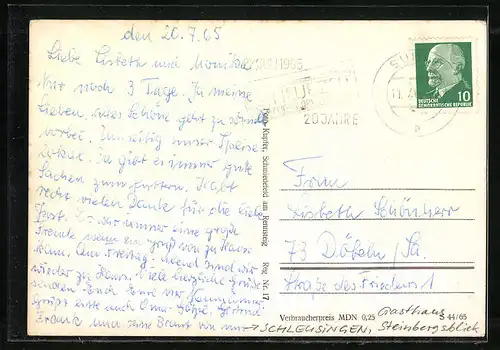 den 20.7.65
Liebe Lisbeth und Monika
Nur noch 3 Tage. Ja meine
Lieben, alles Schöne geht zu
vorbei. unser Speise
lokal. Da gibt es immer gute
Sachen zum futtern. Habt
recht vielen Dank für die liebe
Post. Es immer eine große
Freude wenn ein Gruß von zu Hause
kam. Am Freitag Abend sind wir
wieder zu Haus. Viele herzliche Grüße
senden Euch Eure vier
Grüßt bitte auch Oma
Frank und seine Braut von uns
SCHLEUSINGEN, Gasthaus
Steinbergsblick
/1965
20 JAHRE
SU
DEUTSCHE
DEMOKRATISCHE REPUBLIK
10
Frau
Lisbeth Schönherr
73 Döbeln/Sa.
Straße des Friedens 1
Schmiedefeld am Rennsteig
Reg. Nr. I/7
Verbraucherpreis MDN 0,25
S 44/65